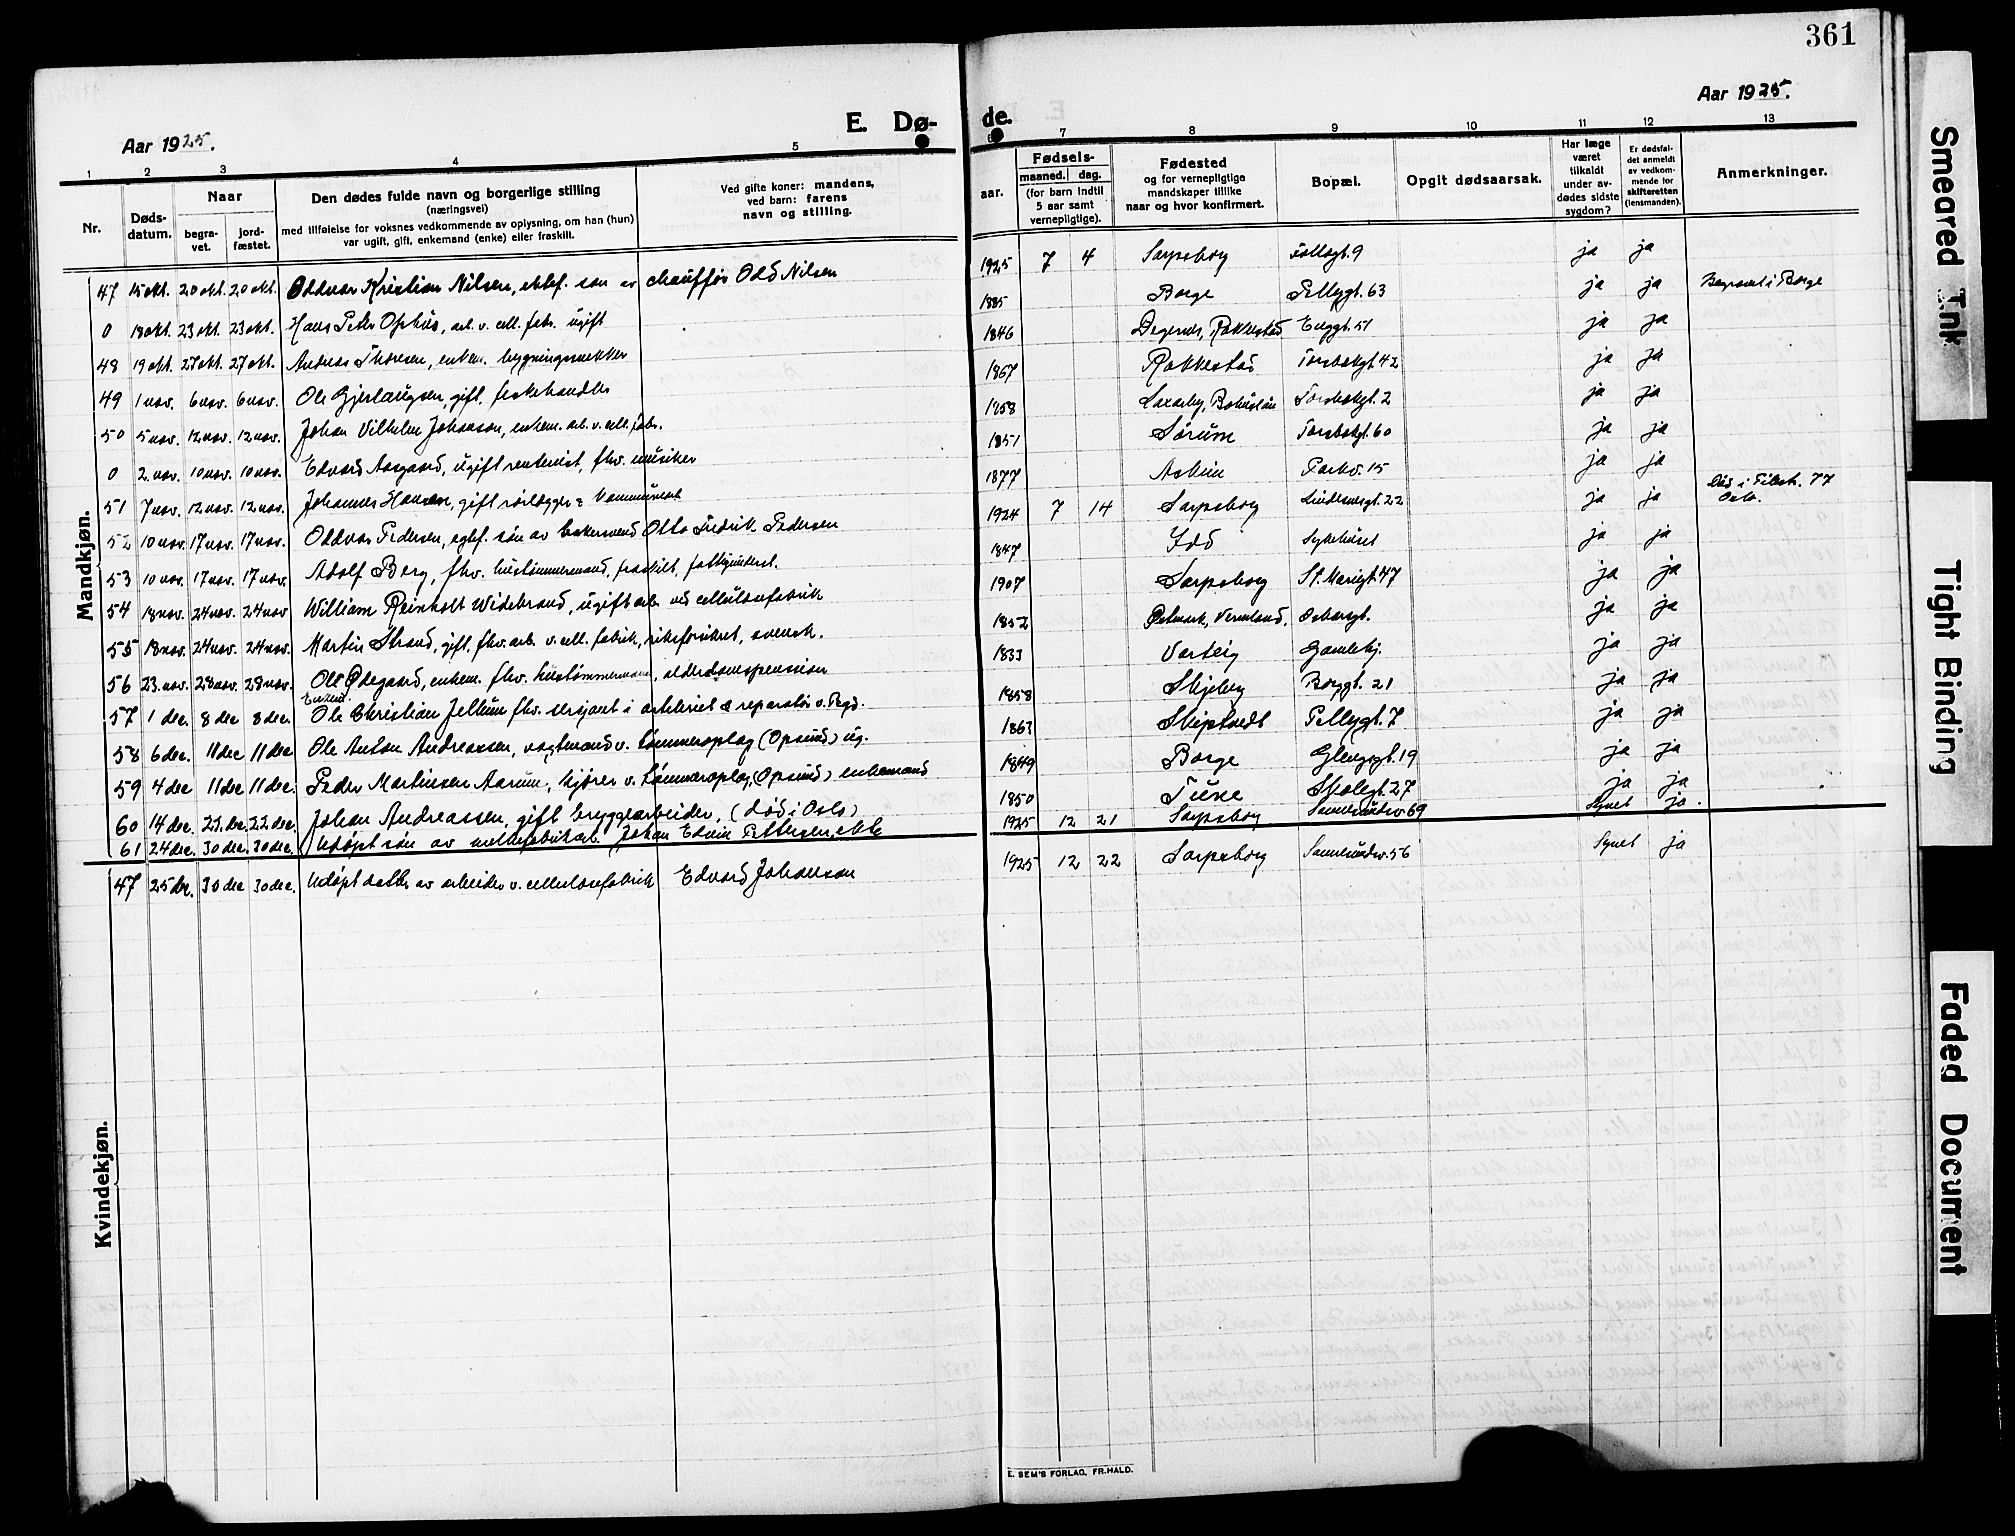 361
Aar 1925. E. Dø- de. Aar 1925.
1 2 3 4 5 6 7 8 9 10 11 12 13
Nr. Døds-datum. Naar begra-vet. jord-fæstet. Den dødes fulde navn og borgerlige stilling (næringsvei) med tilføielse for voksnes vedkommende av oplysning, om han (hun) var ugift, gift, enkemand (enke) eller fraskilt. Ved gifte koner: mandens, ved barn: farens navn og stilling. aar. Fødsels- maaned. dag. (for barn indtil 5 aar samt vernepligtige). Fødested og for vernepligtige mandskaper tillike naar og hvor konfirmert. Bopæl. Opgit dødsaarsak. Har læge været tilkaldt under av-dødes sidste sygdom? Er dødsfal-det anmeldt av vedkom-mende for skifteretten (lensmanden). Anmerkninger.
Mandkjøn.
47 15 okt. 20 okt. 20 okt. Oddvar Kristian Nilsen, ektef. søn av chauffør Odd Nilsen 1925 7 4 Sarpsborg 9 ja ja
0 18 okt. 23 okt. 23 okt. Hans Peter Ophus, arb. v. cell. fabr. ugift 1885 Borge Pellygt. 63 ja ja Begravet i Borge
48 19 okt. 27 okt. 27 okt. Andreas Thoresen, enkem. bygningssnekker 1846 Degernes, Rakkestad Enggt. 51 ja ja
49 1 nov. 6 nov. 6 nov. Ole Gjerlaugsen, gift, fiskehandler 1867 Rakkestad Torsbekgt. 42 ja ja
50 5 nov. 12 nov. 12 nov. Johan Vilhelm Johanson, enkem. arb. v. cell. fabr. 1858 Båhuslän Torsbekgt. 2 ja ja
0 2. nov. 10 nov. 10 nov. Edvard Aasgaard, ugift rentenist, fhv. musiker 1851 Sørum Torsbekgt. 60 ja ja
51 7 nov. 12 nov. 12 nov. Johannes Hansen, gift rørlægger 1877 Askim Parkv. 15 ja ja
52 10 nov. 17 nov. 17 nov. Oddvar Pedersen, egtef. søn av bakersvend Otto Fredrik Pedersen 1924 7 14 Sarpsborg 22 ja ja Død i 77 Oslo.
53 10 nov. 17 nov. 17 nov. Adolf Berg, fhv. hustømmermand, fraskilt, fattigunderst. 1847 Idd Sykehuset ja ja
54 18 nov. 24 nov. 24 nov William Reinholt Widebrand, ugift arb. ved cellulosefabrik 1907 Sarpsborg St. Mariegt. 47 ja ja
55 18 nov. 24 nov. 24 nov. Martin Strand, gift, fhv. arb. v. cell. fabrik, riksforsikret, svensk. 1852 Østmark, Vermland. Oscarsgt. ja ja
56 23. nov. 28 nov. 28 nov. Ole Ødegaard, enkem. fhv. hustømmermand, alderdomspension 1833 Varteig Gamlehj. ja ja
57 1 dec. 8 dec 8 dec. Enkem. Ole Christian Jellum fhv. sersjant i artileriet & reparatør v. 1858 Skjeberg Borggt. 21 ja ja
58 6 dec. 11 dec 11 dec Ole Anton Andreassen, vagtmand v. tømmeroplag (Opsund) ug. 1863 Skiptvedt Pellygt. 7 ja ja
59 4 dec 11 dec 11 dec. Peder Martinsen Aarum, kjører v. tømmeroplag, (Opsund) enkemand 1849 Borge Glengsgt. 19 ja ja
60 14 dec. 22. dec. 22 dec. Johan Andreassen, gift bryggearbeider, (død i Oslo) 1850 Tune Skolegt. 27 ja ja
61 24 dec. 30 dec. 30 dec. Udøpt søn av Johan Edvin Pettersen, 1925 12 21 Sarpsborg Sannesundsv. 69 Synet ja.
Kvindekjøn.
47 25 dec. 30 dec 30 dec. Udøpt datter av arbeider v. cellulosefabrik Edvard Johansson 1925 12 22 Sarpsborg Sannesundsv. 56 Synet ja
E. SEM'S FORLAG, FR.HALD.
Smeared Ink
Tight Binding
Faded Document